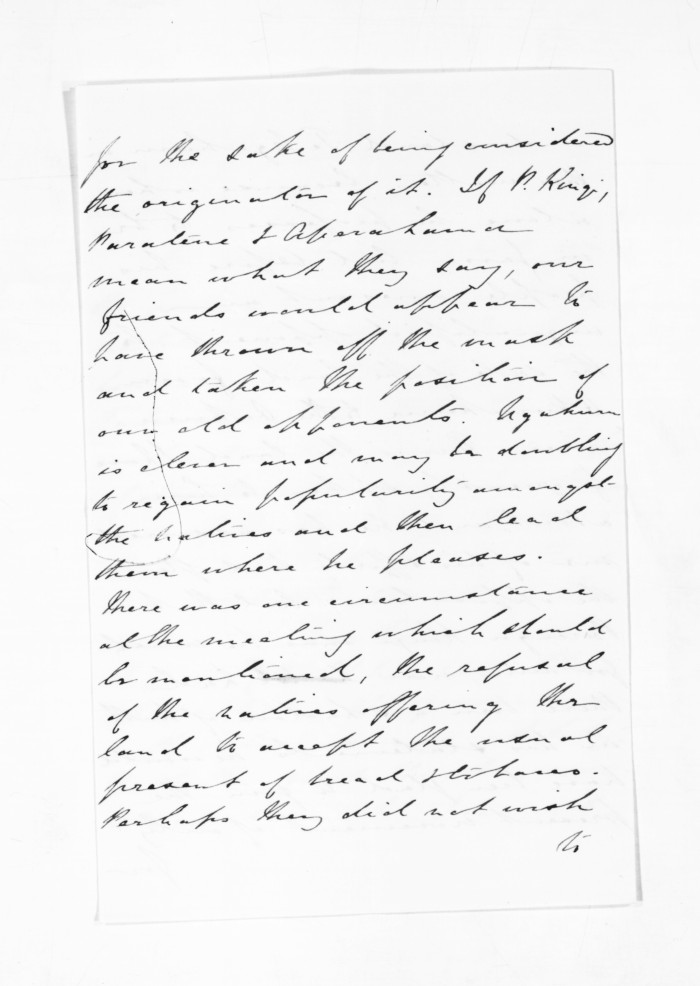 for the sake of being considered
the originator of it. If P. Kingi,
Paratene & Aperahama
mean what they say, our
friends would appear to
have thrown off the mask
and taken the position of
our old opponents. Ngahuru
is clever and may be doubling
to regain popularity amongst
the natives and then lead
them where he pleases.
There was one circumstance
at the meeting which should
be mentioned, the refusal
of the natives offering the
land to accept the usual
present of bread & tobacco.
Perhaps they did not wish
to